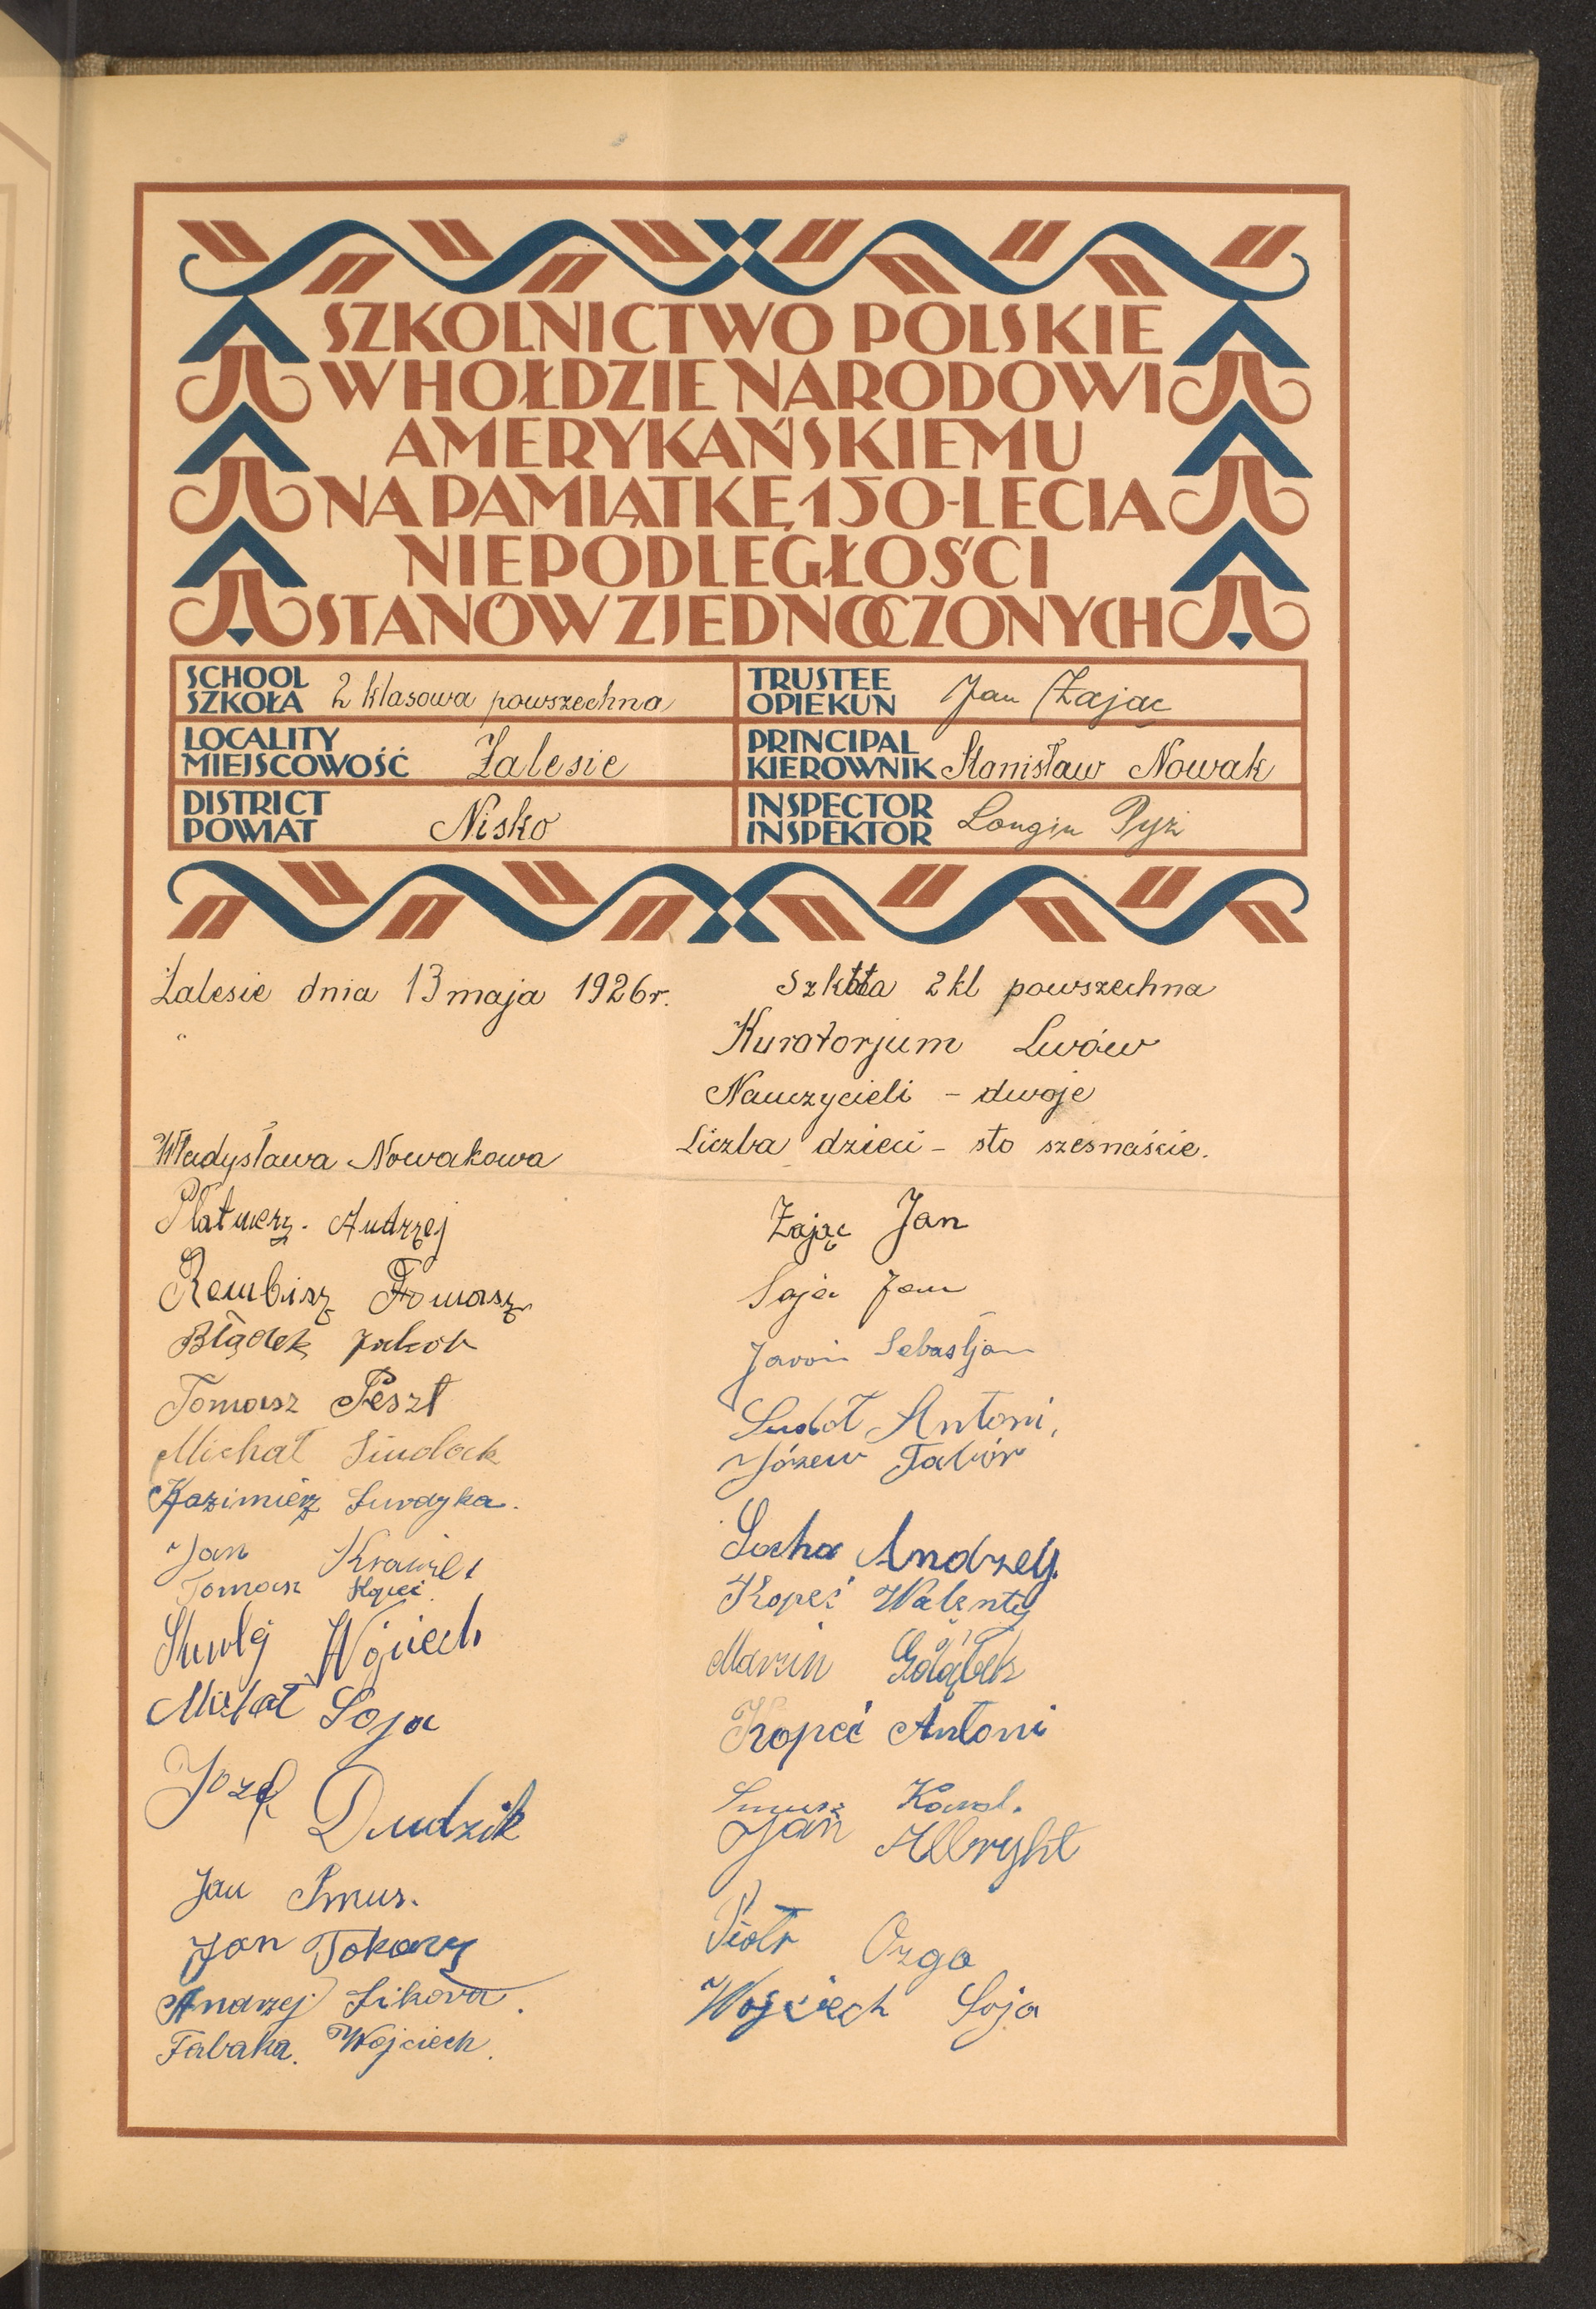 SZKOLNICTWO POLSKIE
W HOŁDZIE NARODOWI
AMERYKAŃSKIEMU
NA PAMIĄTKĘ 150-LECIA
NIEPODLEGŁOŚCI
STANÓW ZJEDNOCZONYCH
SCHOOL
SZKOŁA 2 klasowa powszechna
TRUSTEE
OPIEKUN Jan Zając
LOCALITY
MIEJSCOWOŚĆ Zalesie
PRINCIPAL
KIEROWNIK Stanisław Nowak
DISTRICT
POWIAT Nisko
INSPECTOR
INSPEKTOR Longin Pyzi
Zalesie dnia 13 maja 1926r.
Szkoła 2 kl powszechna
Kuratorjum Lwów
Nauczycieli - dwoje
Liczba dzieci - sto szesnaście.
Władysława Nowakowa
Andrzej
Rembisz Tomasz
Błądek Jakób
Tomasz Peszt
Michał
Kazimierz
Jan
Tomasz Kopeć
Michał Soja
Józef Dudzik
Jan Smus.
Jan Tokarz
Andrzej Sikora.
Tabaka. Wojciech.
Zając Jan
Soja Jan
Sebastjan
Sudoł Antoni,
Józew Tabór
Socha Andrzey.
Kopeć Walenty
Marcin Gołąbek
Kopeć Antoni
Karol.
Jan Albryht
Piotr Ozga
Wojciech Soja